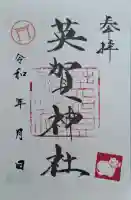 奉拝
英賀神社
令和 年 月 日